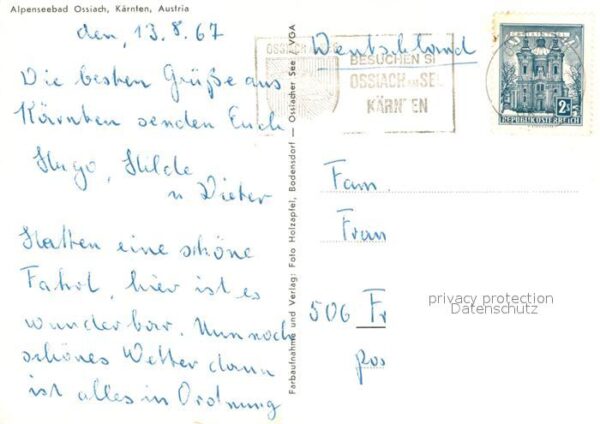 Alpenseebad Ossiach, Kärnten, Austria
den, 13.8.67
Die besten Grüße aus
Kärnten senden Euch
Hugo, Hilde
u Dieter
Hatten eine schöne
Fahrt, hier ist es
wunderbar. Nun noch
schönes Wetter dann
ist alles in Ordnung
Farbaufnahme und Verlag: Foto Holzapfel, Bodensdorf — Ossiacher See / VGA
Deutschland
BESUCHEN SI
OSSIACH AM SEE
KÄRNTEN
2S
REPUBLIK ÖSTERREICH
Fam.
Fran
506 Fr
pos
privacy protection
Datenschutz